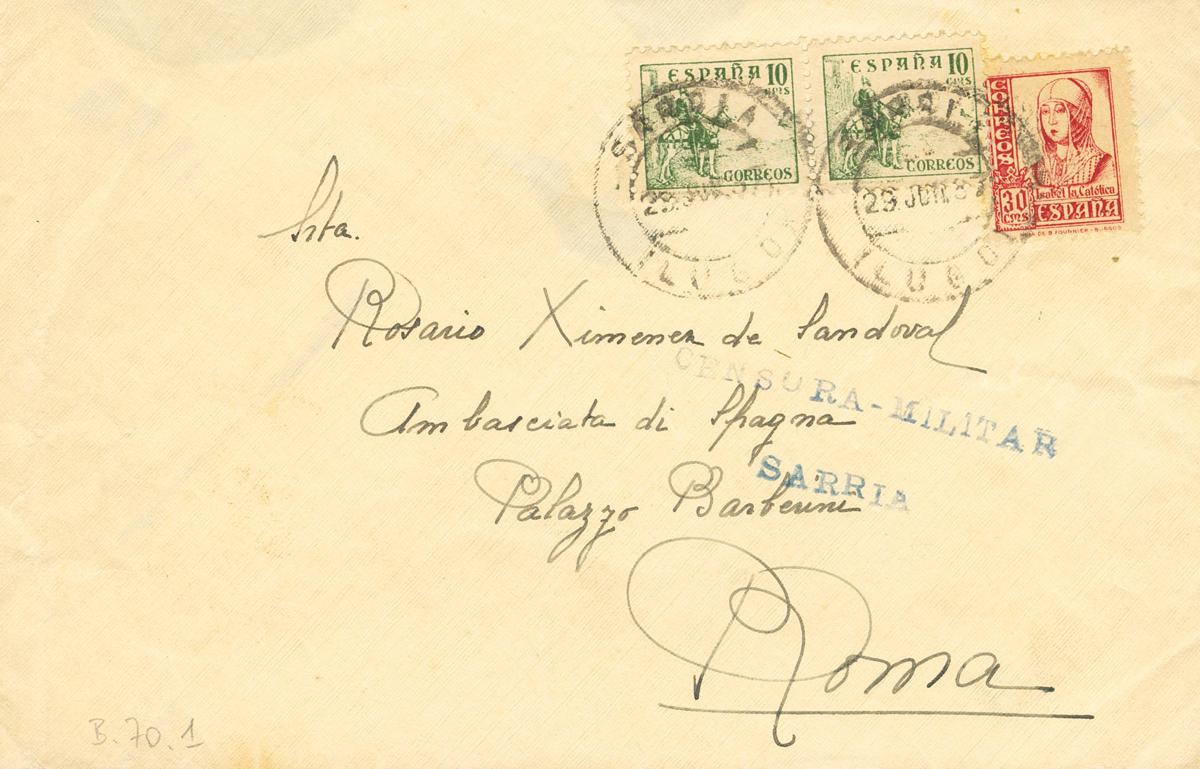 ESPAÑA 10 cms
CORREOS
ESPAÑA 10 cms
CORREOS
CORREOS
30 cms
Isabel la Católica
ESPAÑA
SARRIA
29 JUN 37
LUGO
SARRIA
29 JUN 37
LUGO
Srta.
Rosario Ximenez de Sandoval
Ambasciata di Spagna
Palazzo Barberini
Roma
CENSURA-MILITAR
SARRIA
B.70.1